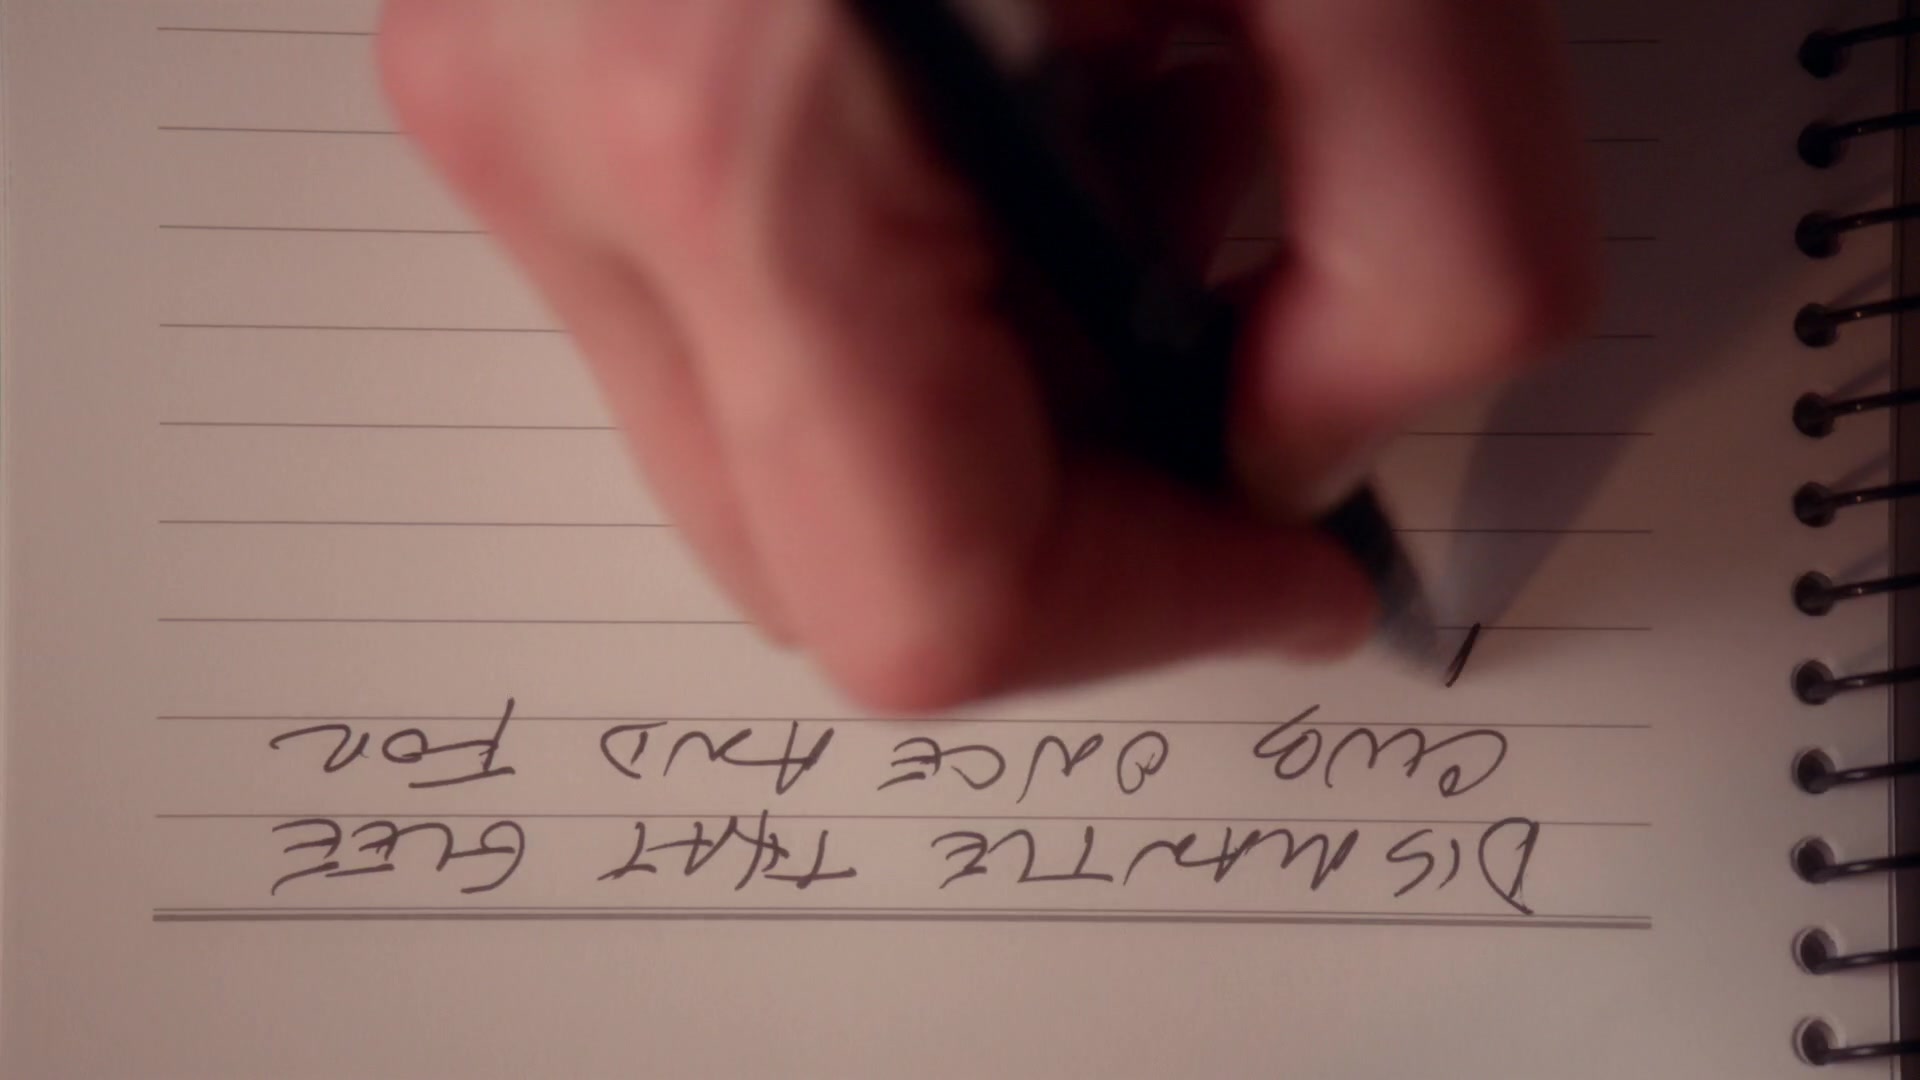 DISMANTLE THAT GLEE
CLUB ONCE AND FOR